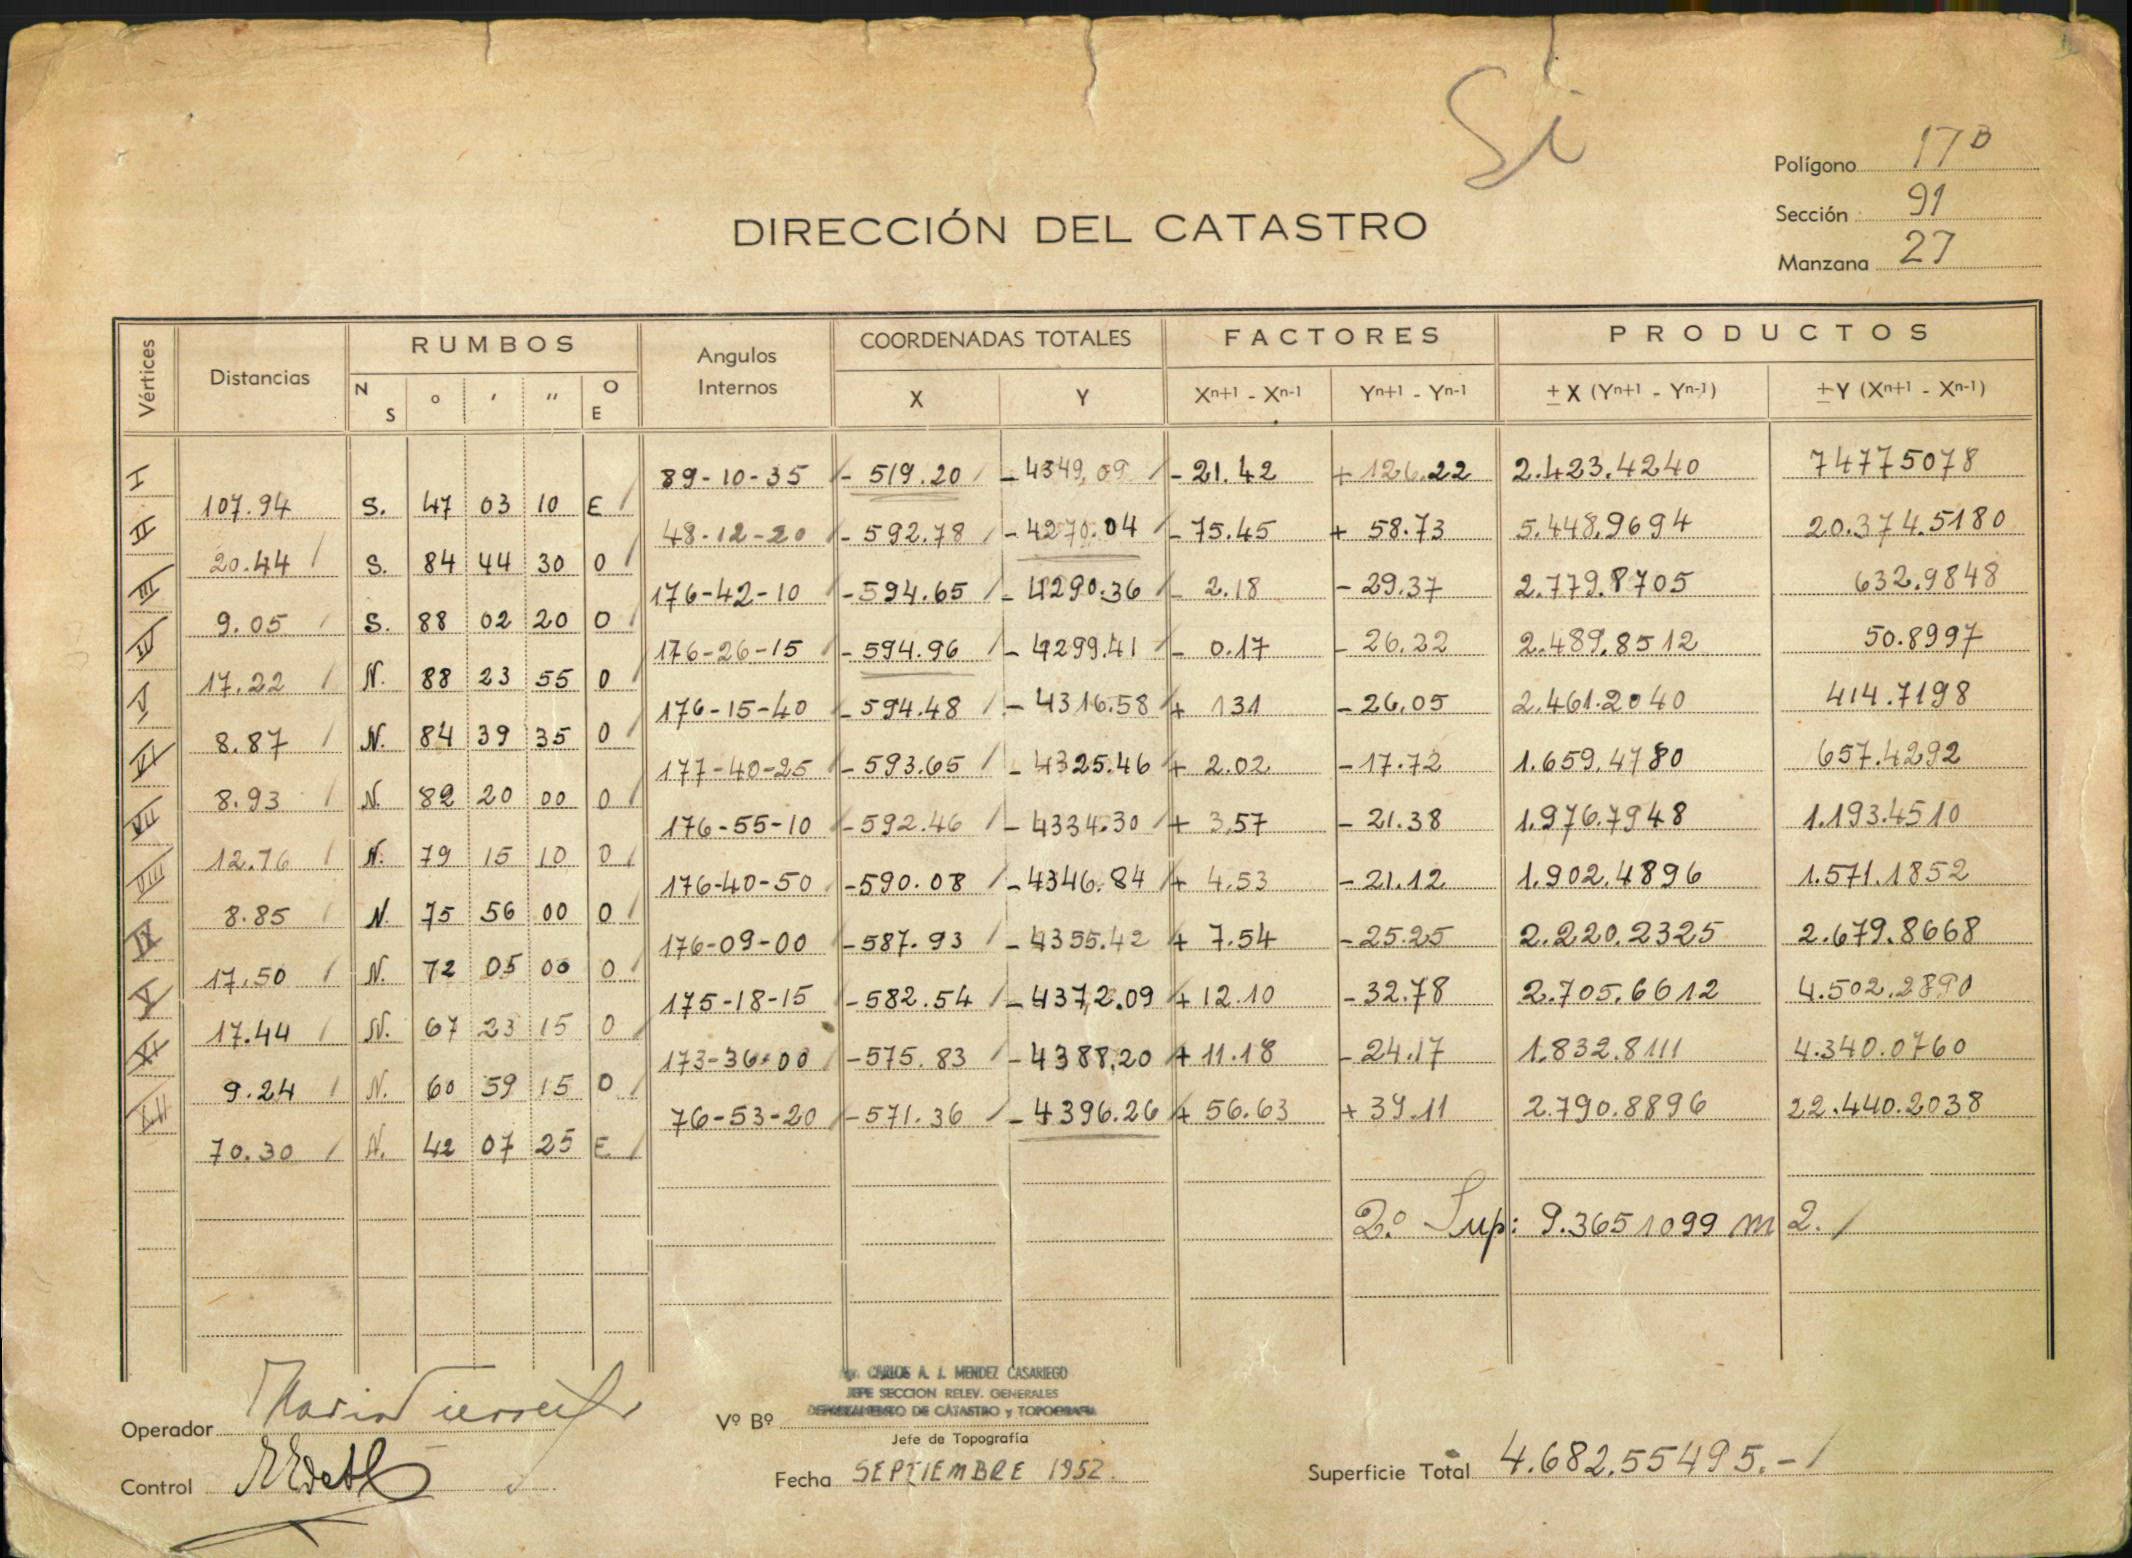 Si
Polígono 17 B
Sección 91
Manzana 27
DIRECCIÓN DEL CATASTRO
Vértices Distancias RUMBOS Angulos Internos COORDENADAS TOTALES FACTORES PRODUCTOS
N S ° ' " O E X Y Xn+1 - Xn-1 Yn+1 - Yn-1 ± X (Yn+1 - Yn-1) ± Y (Xn+1 - Xn-1)
I 89-10-35 - 519.20 - 4349,09 - 21.42 + 126.22 2.423.4240 74775078
107.94 S. 47 03 10 E
II 48-12-20 - 592.78 - 4270.04 - 75.45 + 58.73 5.448.9694 20.374.5180
20.44 S. 84 44 30 O
III 176-42-10 - 594.65 - 4290.36 - 2.18 - 29.37 2.779.8705 632.9848
9.05 S. 88 02 20 O
IV 176-26-15 - 594.96 - 4299.41 - 0.17 - 26.22 2.489.8512 50.8997
17.22 N. 88 23 55 O
V 176-15-40 - 594.48 - 4316.58 + 131 - 26.05 2.461.2040 414.7198
8.87 N. 84 39 35 O
VI 177-40-25 - 593.65 - 4325.46 + 2.02 - 17.72 1.659.4780 657.4292
8.93 N. 82 20 00 O
VII 176-55-10 - 592.46 - 4334.30 + 3.57 - 21.38 1.976.7948 1.193.4510
12.76 N. 79 15 10 O
VIII 176-40-50 - 590.08 - 4346.84 + 4.53 - 21.12 1.902.4896 1.571.1852
8.85 N. 75 56 00 O
IX 176-09-00 - 587.93 - 4355.42 + 7.54 - 25.25 2.220.2325 2.679.8668
17.50 N. 72 05 00 O
X 175-18-15 - 582.54 - 4372.09 + 12.10 - 32.78 2.705.6612 4.502.2890
17.44 N. 67 23 15 O
XI 173-36-00 - 575.83 - 4388.20 + 11.18 - 24.17 1.832.8111 4.340.0760
9.24 N. 60 59 15 O
XII 76-53-20 - 571.36 - 4396.26 + 56.63 + 39.11 2.790.8896 22.440.2038
70.30 N. 42 07 25 E
2.° Sup: 9.3651099 m 2.
CARLOS A. J. MENDEZ CASARIEGO
JEFE SECCION RELEV. GENERALES
DEPARTAMENTO DE CATASTRO y TOPOGRAFIA
Operador
Vº Bº
Jefe de Topografía
Control
Fecha SEPTIEMBRE 1952.
Superficie Total 4.682.55495.-